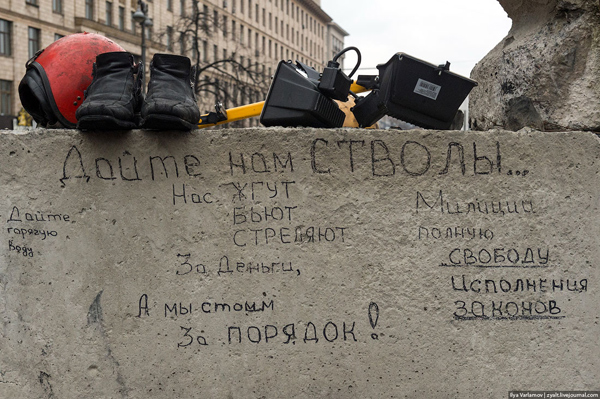 Дайте нам СТВОЛЫ...
Нас ЖГУТ
БЬЮТ
СТРЕЛЯЮТ
За Деньги,
А мы стоим
За ПОРЯДОК!
Дайте
горячую
Воду
Милиции
полную
СВОБОДУ
Исполнения
ЗАКОНОВ
Ilya Varlamov | zyalt.livejournal.com